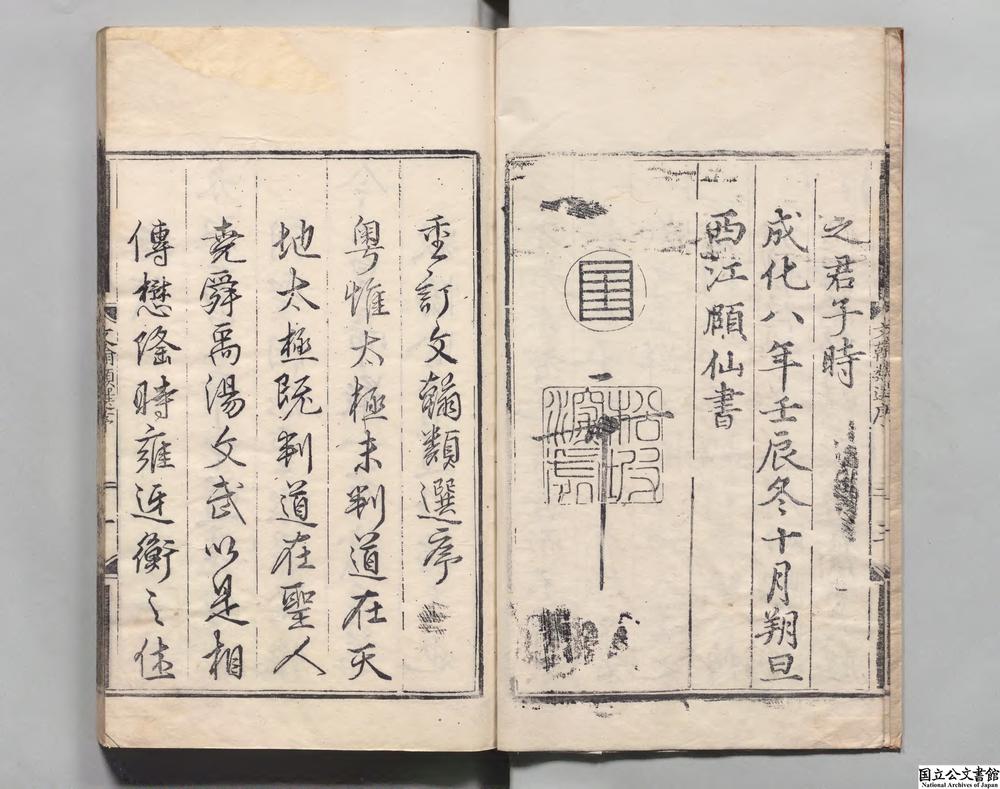 之君子時
成化八年壬辰冬十月朔旦
西江頤仙書
重訂文翰類選序
粤惟太極未判道在天
地太極既判道在聖人
堯舜禹湯文武以是相
傳懋隆時雍迓衡之佳
国立公文書館
National Archives of Japan